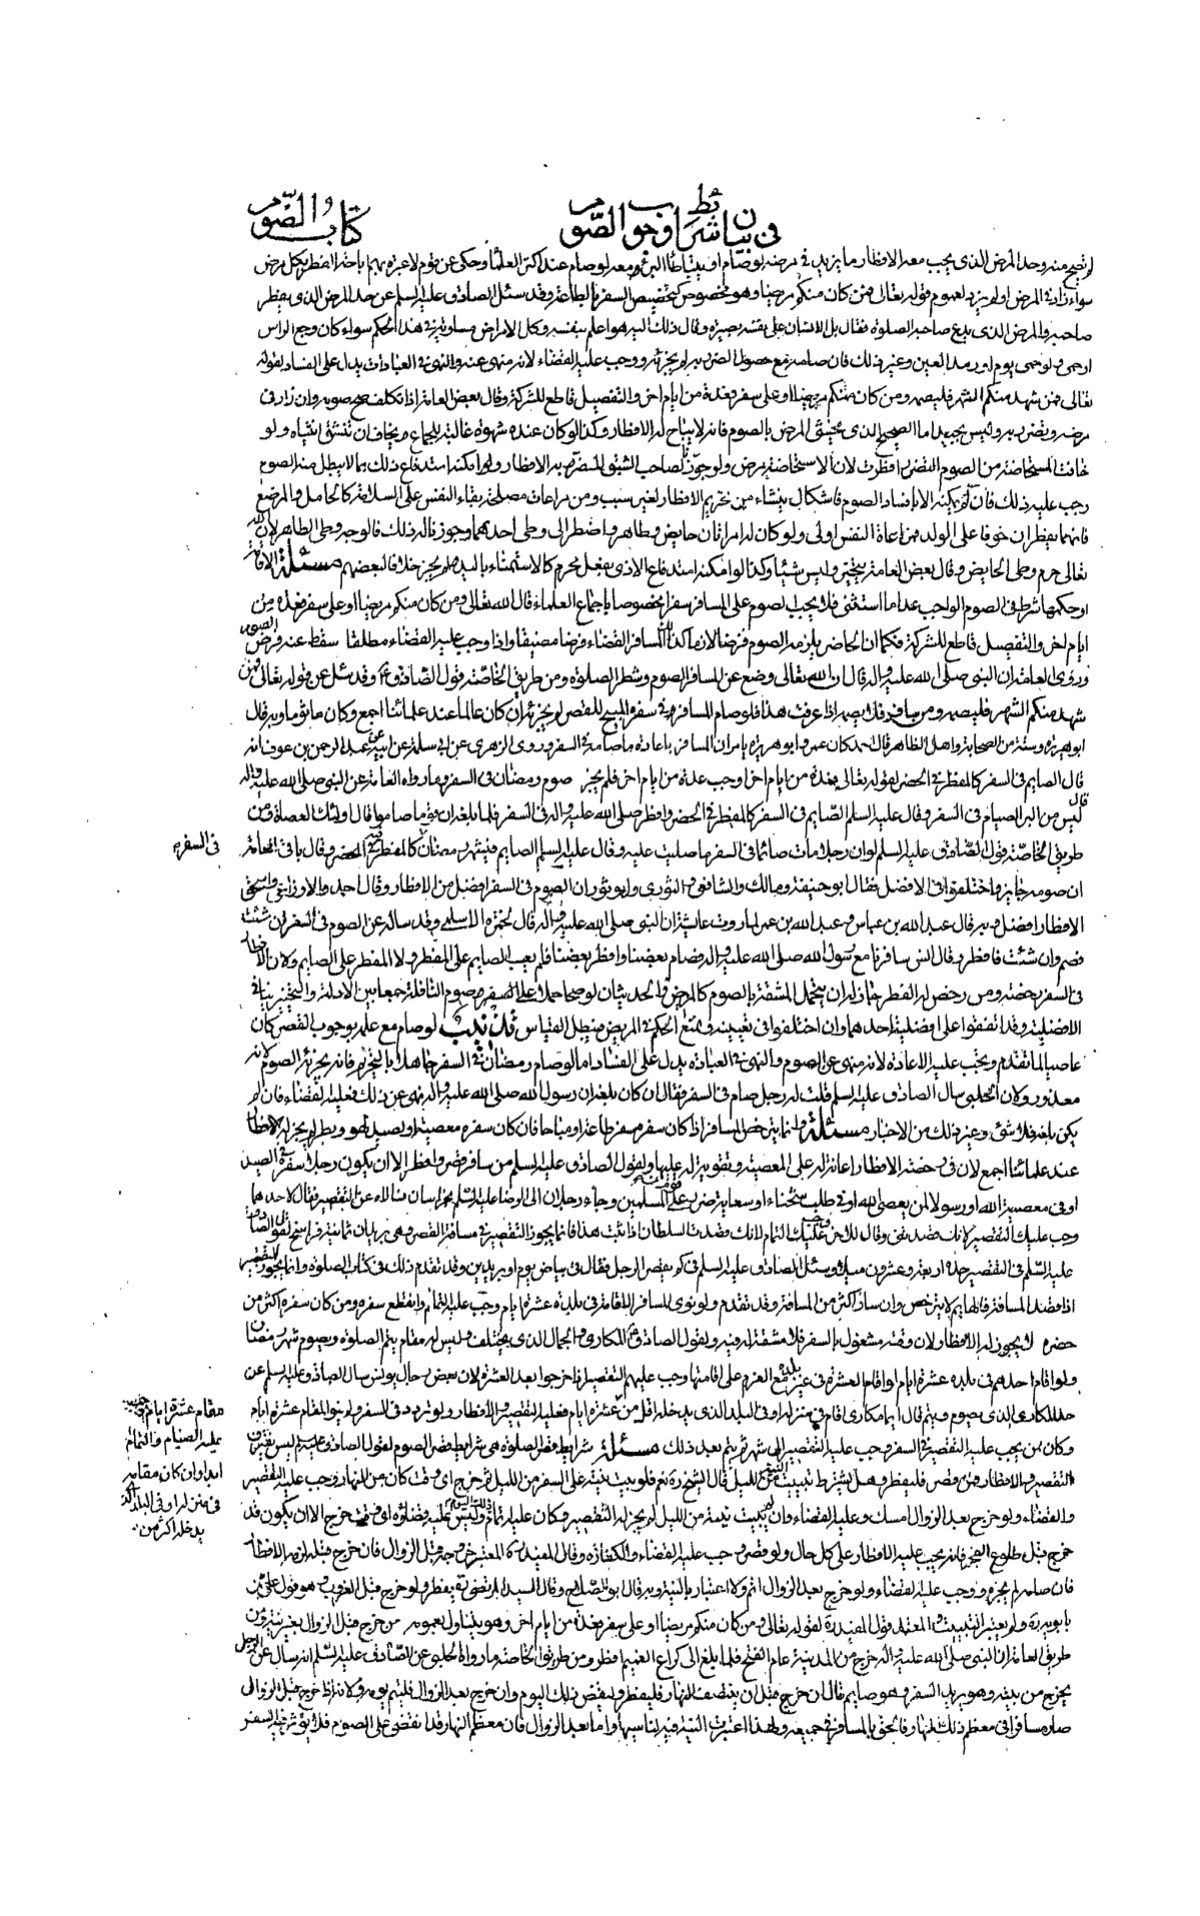 في بيان شرائط وجوب الصوم
كتاب الصوم
لم تصح منه وحد المرض الذي يجب معه الافطار ما يزيد في مرضه لو صام او يتباطأ البرؤ معه لو صام عند اكثر العلماء وحكى عن قوم لا عبرة بهم اباحة الفطر بكل مرض
سواء زاد في المرض او لم يزد لعموم قوله تعالى فمن كان منكم مريضا وهو مخصوص كتخصيص السفر بالطاعة وقد سئل الصادق عليه السلم عن حد المرض الذي يفطر
صاحبه والمرض الذي يدع صاحبه الصلوة فقال بل الانسان على نفسه بصيرة وقال ذلك اليه هو اعلم بنفسه وكل الامراض مساوية في هذا الحكم سواء كان وجع الراس
او حمى ولو حمى يوم او رمد العين وغير ذلك فان صامه مع حصول الضرر به لم يجزئه ووجب عليه القضاء لانه منهى عنه والنهى في العبادات يدل على الفساد لقوله
تعالى فمن شهد منكم الشهر فليصمه ومن كان منكم مريضا او على سفر فعدة من ايام اخر والتفصيل قاطع للشركة وقال بعض العامة اذا تكلف صح صومه وان زاد في
مرضه وتضرر به وليس بجيد اما الصحيح الذي يخشى المرض بالصوم فانه لا يباح له الافطار وكذا لو كان عنده شهوة غالبة للجماع يخاف ان تنشق انثياه ولو
خافت المستحاضة من الصوم التضرر افطرت لان الاستحاضة مرض ولو جوزنا لصاحب الشبق المضر به الافطار ولو امكنه استدفاع ذلك بما لا يبطل منه الصوم
وجب عليه ذلك فان لم يمكنه الا بافساد الصوم فاشكال ينشاء من تحريم الافطار لغير سبب ومن مراعات مصلحة بقاء النفس على السلامة كالحامل والمرضع
فانهما يفطران خوفا على الولد فمراعاة النفس اولى ولو كان له امراتان حايض وطاهر واضطر الى وطى احدهما وجوزنا له ذلك فالوجه وطى الطاهر لان الله
تعالى حرم وطى الحايض وقال بعض العامة يتخير وليس شيئا وكذا لو امكنه استدفاع الاذى بفعل محرم كالاستمناء باليد لم يجز خلافا لبعضهم مسئلة الاقامة
او حكمها شرط في الصوم الواجب عدا ما استثنى فلا يجب الصوم على المسافر سفرا مخصوصا باجماع العلماء قال الله تعالى ومن كان منكم مريضا او على سفر فعدة من
ايام اخر والتفصيل قاطع للشركة فكما ان الحاضر يلزمه الصوم فرضا لازما كذلك المسافر القضاء فرضا مضيقا واذا وجب عليه القضاء مطلقا سقط عنه فرض الصوم
وروى العامة ان النبى صلى الله عليه واله قال ان الله تعالى وضع عن المسافر الصوم وشطر الصلوة ومن طريق الخاصة قول الصادق ع وقد سئل عن قوله تعالى فمن
شهد منكم الشهر فليصمه ومن سافر فلا يصمه اذا عرفت هذا فلو صام المسافر في سفره المبيح للقصر لم يجزئه ان كان عالما عند علمائنا اجمع وكان مأثوما وبه قال
ابو هريرة وستة من الصحابة واهل الظاهر قال احمد كان عمر وابو هريرة يامران المسافر باعادة ما صامه في السفر وروى الزهرى عن ابى سلمة عن ابيه عبد الرحمن بن عوف انه
قال الصايم في السفر كالمفطر في الحضر لقوله تعالى فعدة من ايام اخر اوجب عدة من ايام اخر فلم يجز صوم رمضان في السفر وما رواه العامة عن النبى صلى الله عليه واله قال
ليس من البر الصيام في السفر وقال عليه السلم الصايم في السفر كالمفطر في الحضر وافطر صلى الله عليه واله في السفر فلما بلغه ان قوما صاموا قال اولئك العصاة ومن
طريق الخاصة قول الصادق عليه السلم لو ان رجلا مات صائما في السفر ما صليت عليه وقال عليه السلم الصايم في شهر رمضان في السفر كالمفطر فيه في الحضر وقال باقي العامة
ان صومه جايز واختلفوا في الافضل فقال ابو حنيفة ومالك والشافعى والثورى وابو ثور ان الصوم في السفر افضل من الافطار وقال احمد والاوزاعى واسحق
الافطار افضل وبه قال عبد الله بن عباس وعبد الله بن عمر لما روت عايشة ان النبى صلى الله عليه واله قال لحمزة الاسلمى وقد ساله عن الصوم في السفر ان شئت
فصم وان شئت فافطر وقال انس سافرنا مع رسول الله صلى الله عليه واله فصام بعضنا وافطر بعضنا فلم يعب الصايم على المفطر ولا المفطر على الصايم ولان الافطار
في السفر رخصة ومن رخص له الفطر جاز له ان يتحمل المشقة بالصوم كالمرض والحديثان لو صحا حملا على السفر وصوم النافلة جمعا بين الادلة والتخيير ينافى
الافضلية وقد اتفقوا على افضلية احدهما وان اختلفوا في تعيينه ونمنع الحكم في المريض فيبطل القياس تذنيب لو صام مع علمه بوجوب القصر كان
عاصيا لما تقدم ويجب عليه الاعادة لانه منهى عن الصوم والنهى في العبادة يدل على الفساد اما لو صام رمضان في السفر جاهلا بالتحريم فانه يجزئه الصوم لانه
معذور ولان الحلبى سال الصادق عليه السلم قلت له رجل صام في السفر فقال ان كان بلغه ان رسول الله صلى الله عليه واله نهى عن ذلك فعليه القضاء فان لم
يكن بلغه فلا شئ وغير ذلك من الاخبار مسئلة وانما يترخص المسافر اذا كان سفره سفر طاعة او مباحا فان كان سفره معصية او لصيد لهو وبطر لم يجز له الافطار
عند علمائنا اجمع لان في رخصة الافطار اعانة له على المعصية وتقوية له عليها ولقول الصادق عليه السلم من سافر قصر وافطر الا ان يكون رجلا سفره في الصيد
او في معصية الله او رسولا لمن يعصى الله او في طلب شحناء او سعاية ضرر على قوم من المسلمين وجاء رجلان الى الرضا عليه السلم بخراسان فسالاه عن التقصير فقال لاحدهما
وجب عليك التقصير لانك قصدتنى وقال للاخر وجب عليك التمام لانك قصدت السلطان اذا ثبت هذا فانما يجوز التقصير في مسافة القصر وهى بريدان ثمانية فراسخ لقول الصادق
عليه السلم في التقصير حده اربعة وعشرون ميلا وسئل الصادق عليه السلم في كم يقصر الرجل فقال في بياض يوم او بريدين وقد تقدم ذلك في كتاب الصلوة وانما يجوز التقصير
اذا قصد المسافة فالهايم لا يترخص وان سار اكثر من المسافة وقد تقدم ولو نوى المسافر الاقامة في بلدة عشرة ايام وجب عليه التمام وانقطع سفره ومن كان سفره اكثر من
حضره لا يجوز له الافطار لان وقته مشغول بالسفر فلا مشقة له فيه ولقول الصادق ع المكارى والجمال الذى يختلف وليس له مقام يتم الصلوة ويصوم شهر رمضان
ولو اقام احدهم في بلده عشرة ايام او اقام العشرة في غير بلده مع العزم على اقامتها وجب عليهم التقصير اذا خرجوا بعد العشرة لان بعض رجال يونس سال الصادق عليه السلم عن
حد المكارى الذى يصوم ويتم قال ايما مكارى اقام في منزله او في البلد الذى يدخله اقل من عشرة ايام فعليه التقصير والافطار ولو تردد في السفر ولم ينو المقام عشرة ايام
وكان ممن يجب عليه التقصير في السفر وجب عليه التقصير الى شهر ثم يتم بعد ذلك مسئلة شرايط قصر الصلوة هى شرايط قصر الصوم لقول الصادق عليه السلم ليس يفترق
التقصير والافطار فمن قصر فليفطر وهل يشترط تبييت النية من الليل قال الشيخ ره نعم فلو بيت نيته على السفر من الليل ثم خرج اى وقت كان من النهار وجب عليه التقصير
والقضاء ولو خرج بعد الزوال امسك وعليه القضاء وان لم يبيت نيته من الليل لم يجز له التقصير وكان عليه تمام ذلك اليوم وليس عليه قضاؤه اى وقت خرج الا ان يكون قد
خرج قبل طلوع الفجر فانه يجب عليه الافطار على كل حال ولو قصر وجب عليه القضاء والكفارة وقال المفيد ره المعتبر خروجه قبل الزوال فان خرج قبله لزمه الافطار
فان صامه لم يجزه ووجب عليه القضاء ولو خرج بعد الزوال اتم ولا اعتبار بالنية وبه قال ابو الصلاح وقال السيد المرتضى ره يفطر ولو خرج قبل الغروب وهو قول على بن
بابويه ره ولم يعتبر التبييت والمعتمد قول المفيد ره لقوله تعالى ومن كان منكم مريضا او على سفر فعدة من ايام اخر وهو يتناول بعمومه من خرج قبل الزوال بغير نية ومن
طريق العامة ان النبى صلى الله عليه واله خرج من المدينة عام الفتح فلما بلغ الى كراع الغميم افطر ومن طريق الخاصة ما رواه الحلبى عن الصادق عليه السلم انه سال عن الرجل
يخرج من بيته وهو يريد السفر وهو صايم قال ان خرج قبل ان ينتصف النهار فليفطر وليقض ذلك اليوم وان خرج بعد الزوال فليتم يومه ولانه اذا خرج قبل الزوال
صار مسافرا في معظم ذلك النهار فالحق بالمسافر في جميعه ولهذا اعتبرت النية فيه لناسيها واما بعد الزوال فان معظم النهار قد انقضى على الصوم فلا يؤثر فيه السفر
في السفر
مقام عشرة ايام وجب
عليه الصيام والتمام
ابدا وان كان مقامه
في منزله او في البلد الذى
يدخله اكثر من